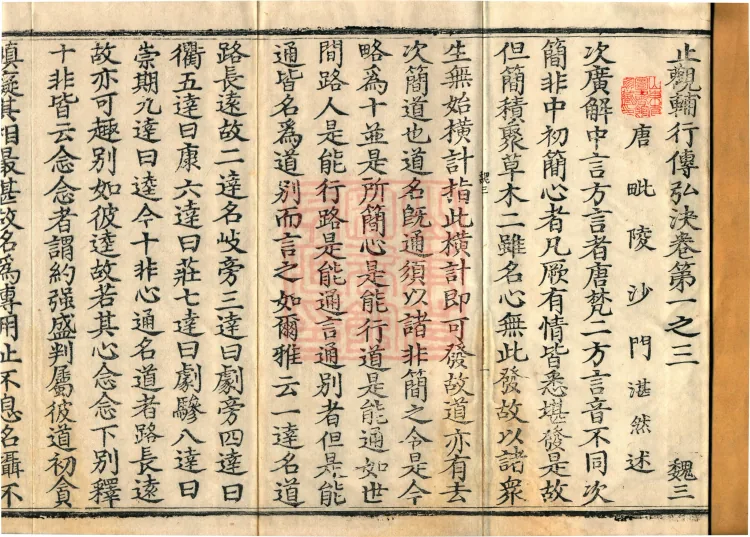 止觀輔行傳弘決卷第一之三 魏三
唐毗陵沙門湛然述
次廣解中言方言者唐梵二方言音不同次
簡非中初簡心者凡厥有情皆悉堪發是故
但簡積聚草木二雖名心無此發故以諸衆
魏三
生無始橫計指此橫計即可發故道亦有去
次簡道也道名旣通須以諸非簡之令是今
略為十並是所簡心是能行道是能通如世
間路人是能行路是能通言通別者但是能
通皆名為道別而言之如爾雅云一達名道
路長遠故二達名岐旁三達曰劇旁四達曰
衢五達曰康六達曰莊七達曰劇驂八達曰
崇期九達曰逵今十非心通名道者路長遠
故亦可趣別如彼逵故若其心念念下別釋
十非皆云念念者謂約强盛判屬彼道初貪
嗔癡其相最甚故名為專用止不息名攝不